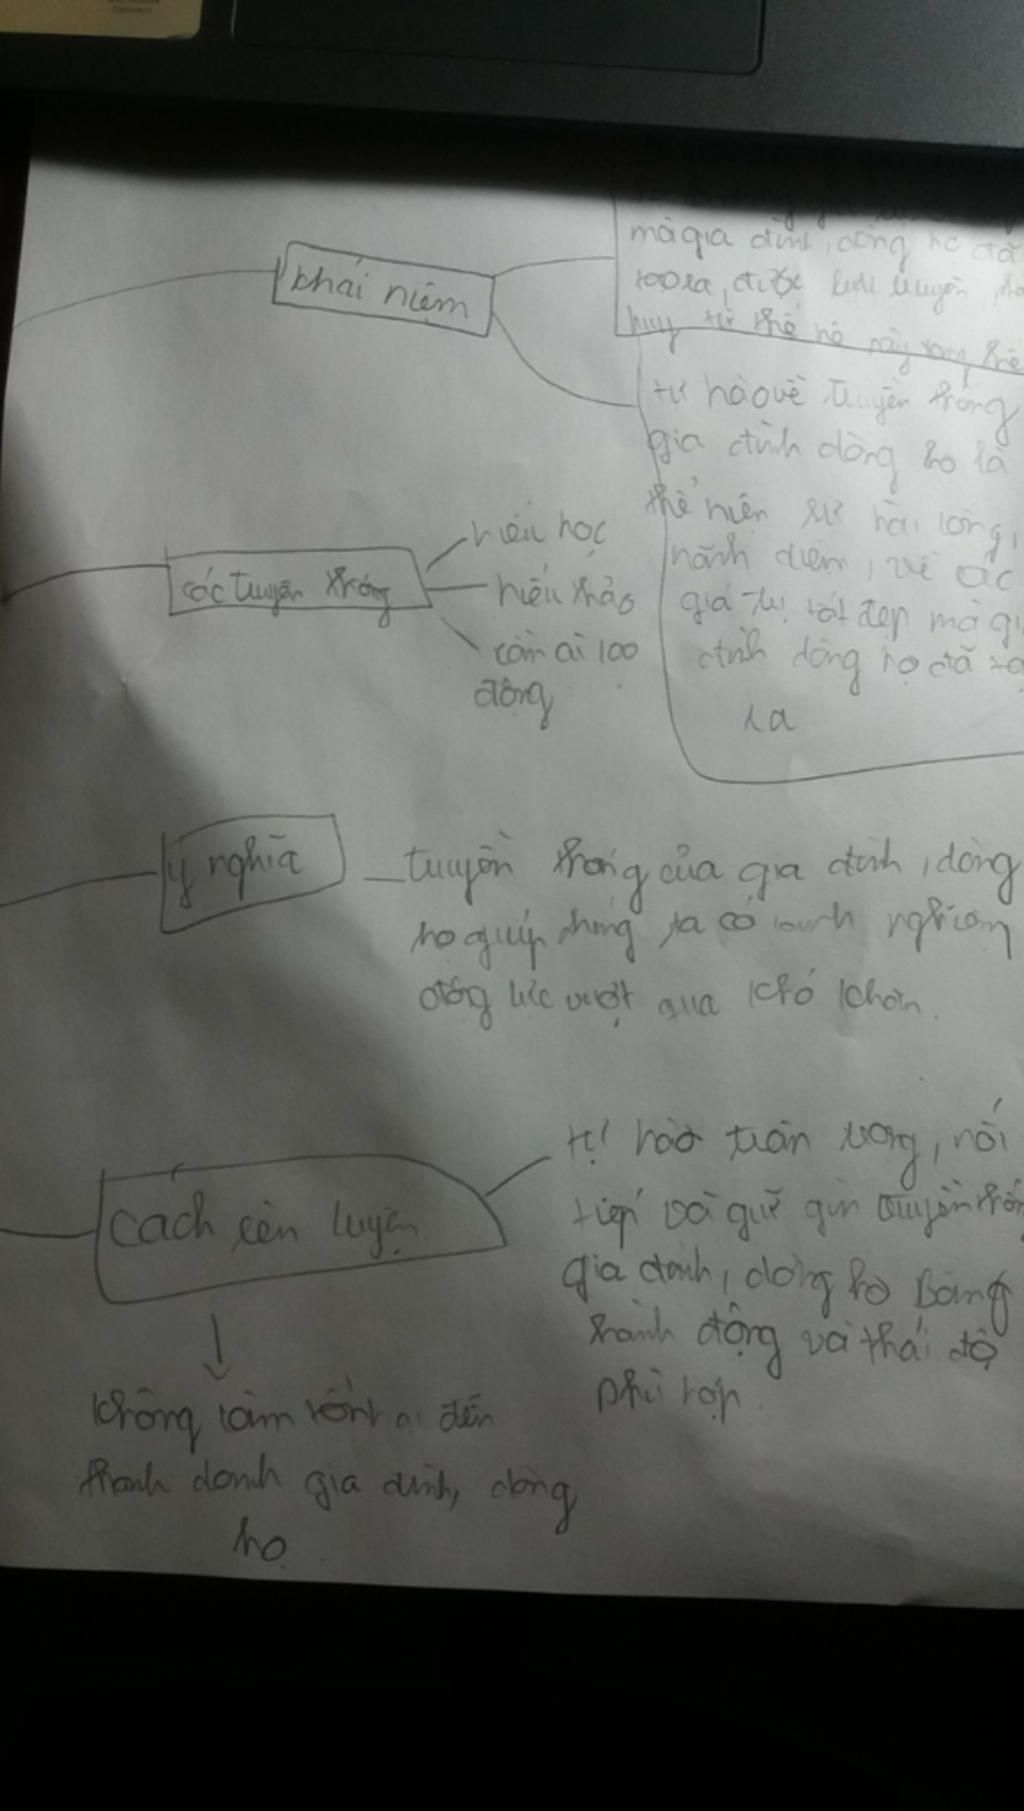 khái niệm
mà gia đình, dòng họ đã
tạo ra, được lưu truyền,
huy từ thế hệ này sang thế
tự hào về truyền thống
gia đình dòng họ là
thể hiện sự hài lòng,
hãnh diện, về các
giá trị tốt đẹp mà gi
đình dòng họ đã tạ
ra
các truyền thống
hiếu học
hiếu thảo
cần
động
ý nghĩa
truyền thống của gia đình, dòng
họ giúp chúng ta có nghiệm
động lực vượt qua khó khăn.
cách rèn luyện
tự hào trân trọng, nối
tiếp và giữ gìn truyền thốn
gia đình, dòng họ Bằng
hành động và thái độ
phù hợp.
không làm tổn hại đến
thanh danh gia đình, dòng
họ.